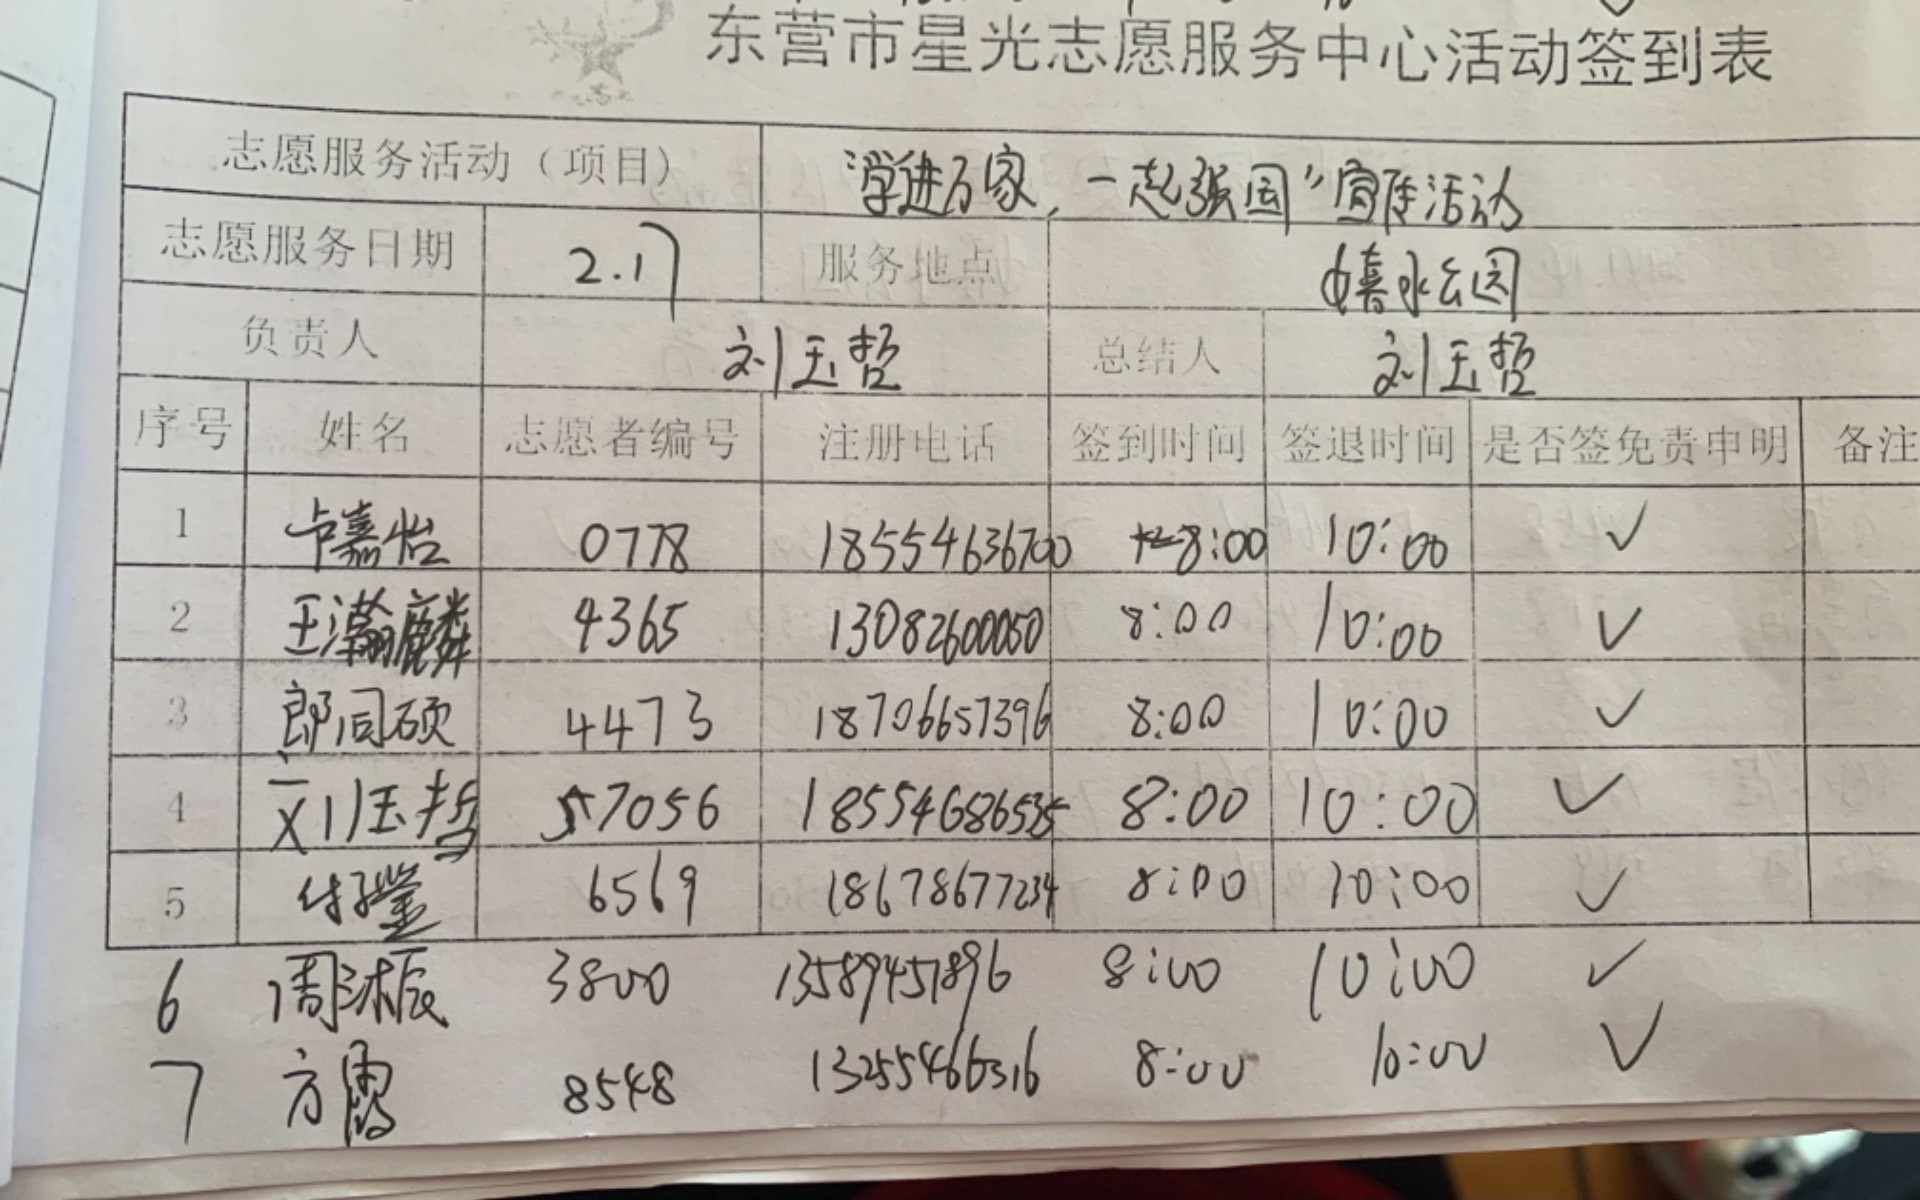 东营市星光志愿服务中心活动签到表
志愿服务活动（项目） “学进万家，一起强国”宣传活动
志愿服务日期 2.17 服务地点 公园
负责人 刘玉哲 总结人 刘玉哲
序号 姓名 志愿者编号 注册电话 签到时间 签退时间 是否签免责申明 备注
1 卞嘉怡 0778 18554636700 8:00 10:00 ✓
2 王瀚麟 4365 13082600050 8:00 10:00 ✓
3 郎同硕 4473 18706657396 8:00 10:00 ✓
4 刘玉哲 57056 18554686535 8:00 10:00 ✓
5 付子鉴 6569 18678677234 8:00 10:00 ✓
6 周沐辰 3800 13589451896 8:00 10:00 ✓
7 方 8548 13255466316 8:00 10:00 ✓